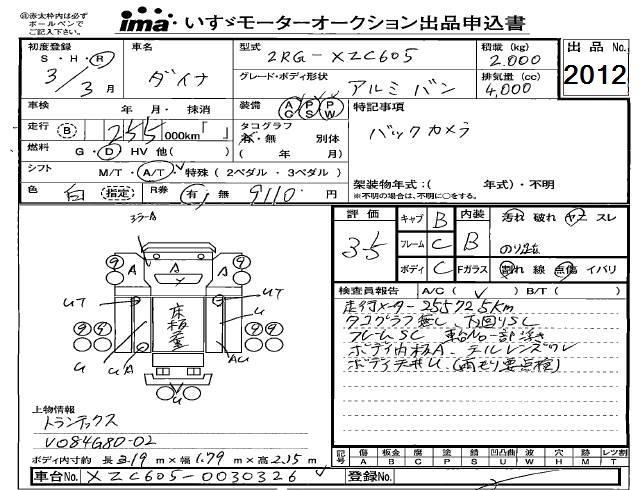 ㊟赤太枠内は必ず
ボールペンで
ご記入下さい。
ima いすゞモーターオークション出品申込書
初度登録
S・H・R
3/3月
車名
ダイナ
型式
2RG-XZC605
グレード・ボディ形状
アルミバン
積載(kg)
2.000
排気量(cc)
4,000
出品No.
2012
車検
年 月・抹消
装備
AC PS PW
特記事項
バックカメラ
走行 B 255,000km「 」
タコグラフ
有・無 別体
( 年 月)
燃料
G・D HV 他( )
シフト
M/T・A/T・特殊(2ペダル・3ペダル)
色 白 指定
R券 有・無 9110円
架装物年式:( 年式)・不明
※不明の場合は、不明に○をする。
評価
3.5
キャブ B
フレーム C
ボディ C
内装 B
汚れ 破れ ヤニ スレ
Fガラス
割れ 線 点傷 イバリ
検査員報告 A/C( ✓ ) B/T( )
走行メーター255725km
タコグラフ無し、下回りSC
フレームSC 車台No一部浮き
ボディ内板A、テルレンズワレ
ボディ天井U(雨モリ要点検)
ミラーA
9 A A A 9
UT UT
床板重
U
99 99
U UA AU
U U
上物情報
トランテックス
V084G80-02
ボディ内寸約 長3.19m×幅1.79m×高2.15m
記号
傷 板金 腐 塗 錆 凹凸曲 波 穴 跡 レツ割
A B C P S U W H M T
車台No. XZC605-0030326
登録No.